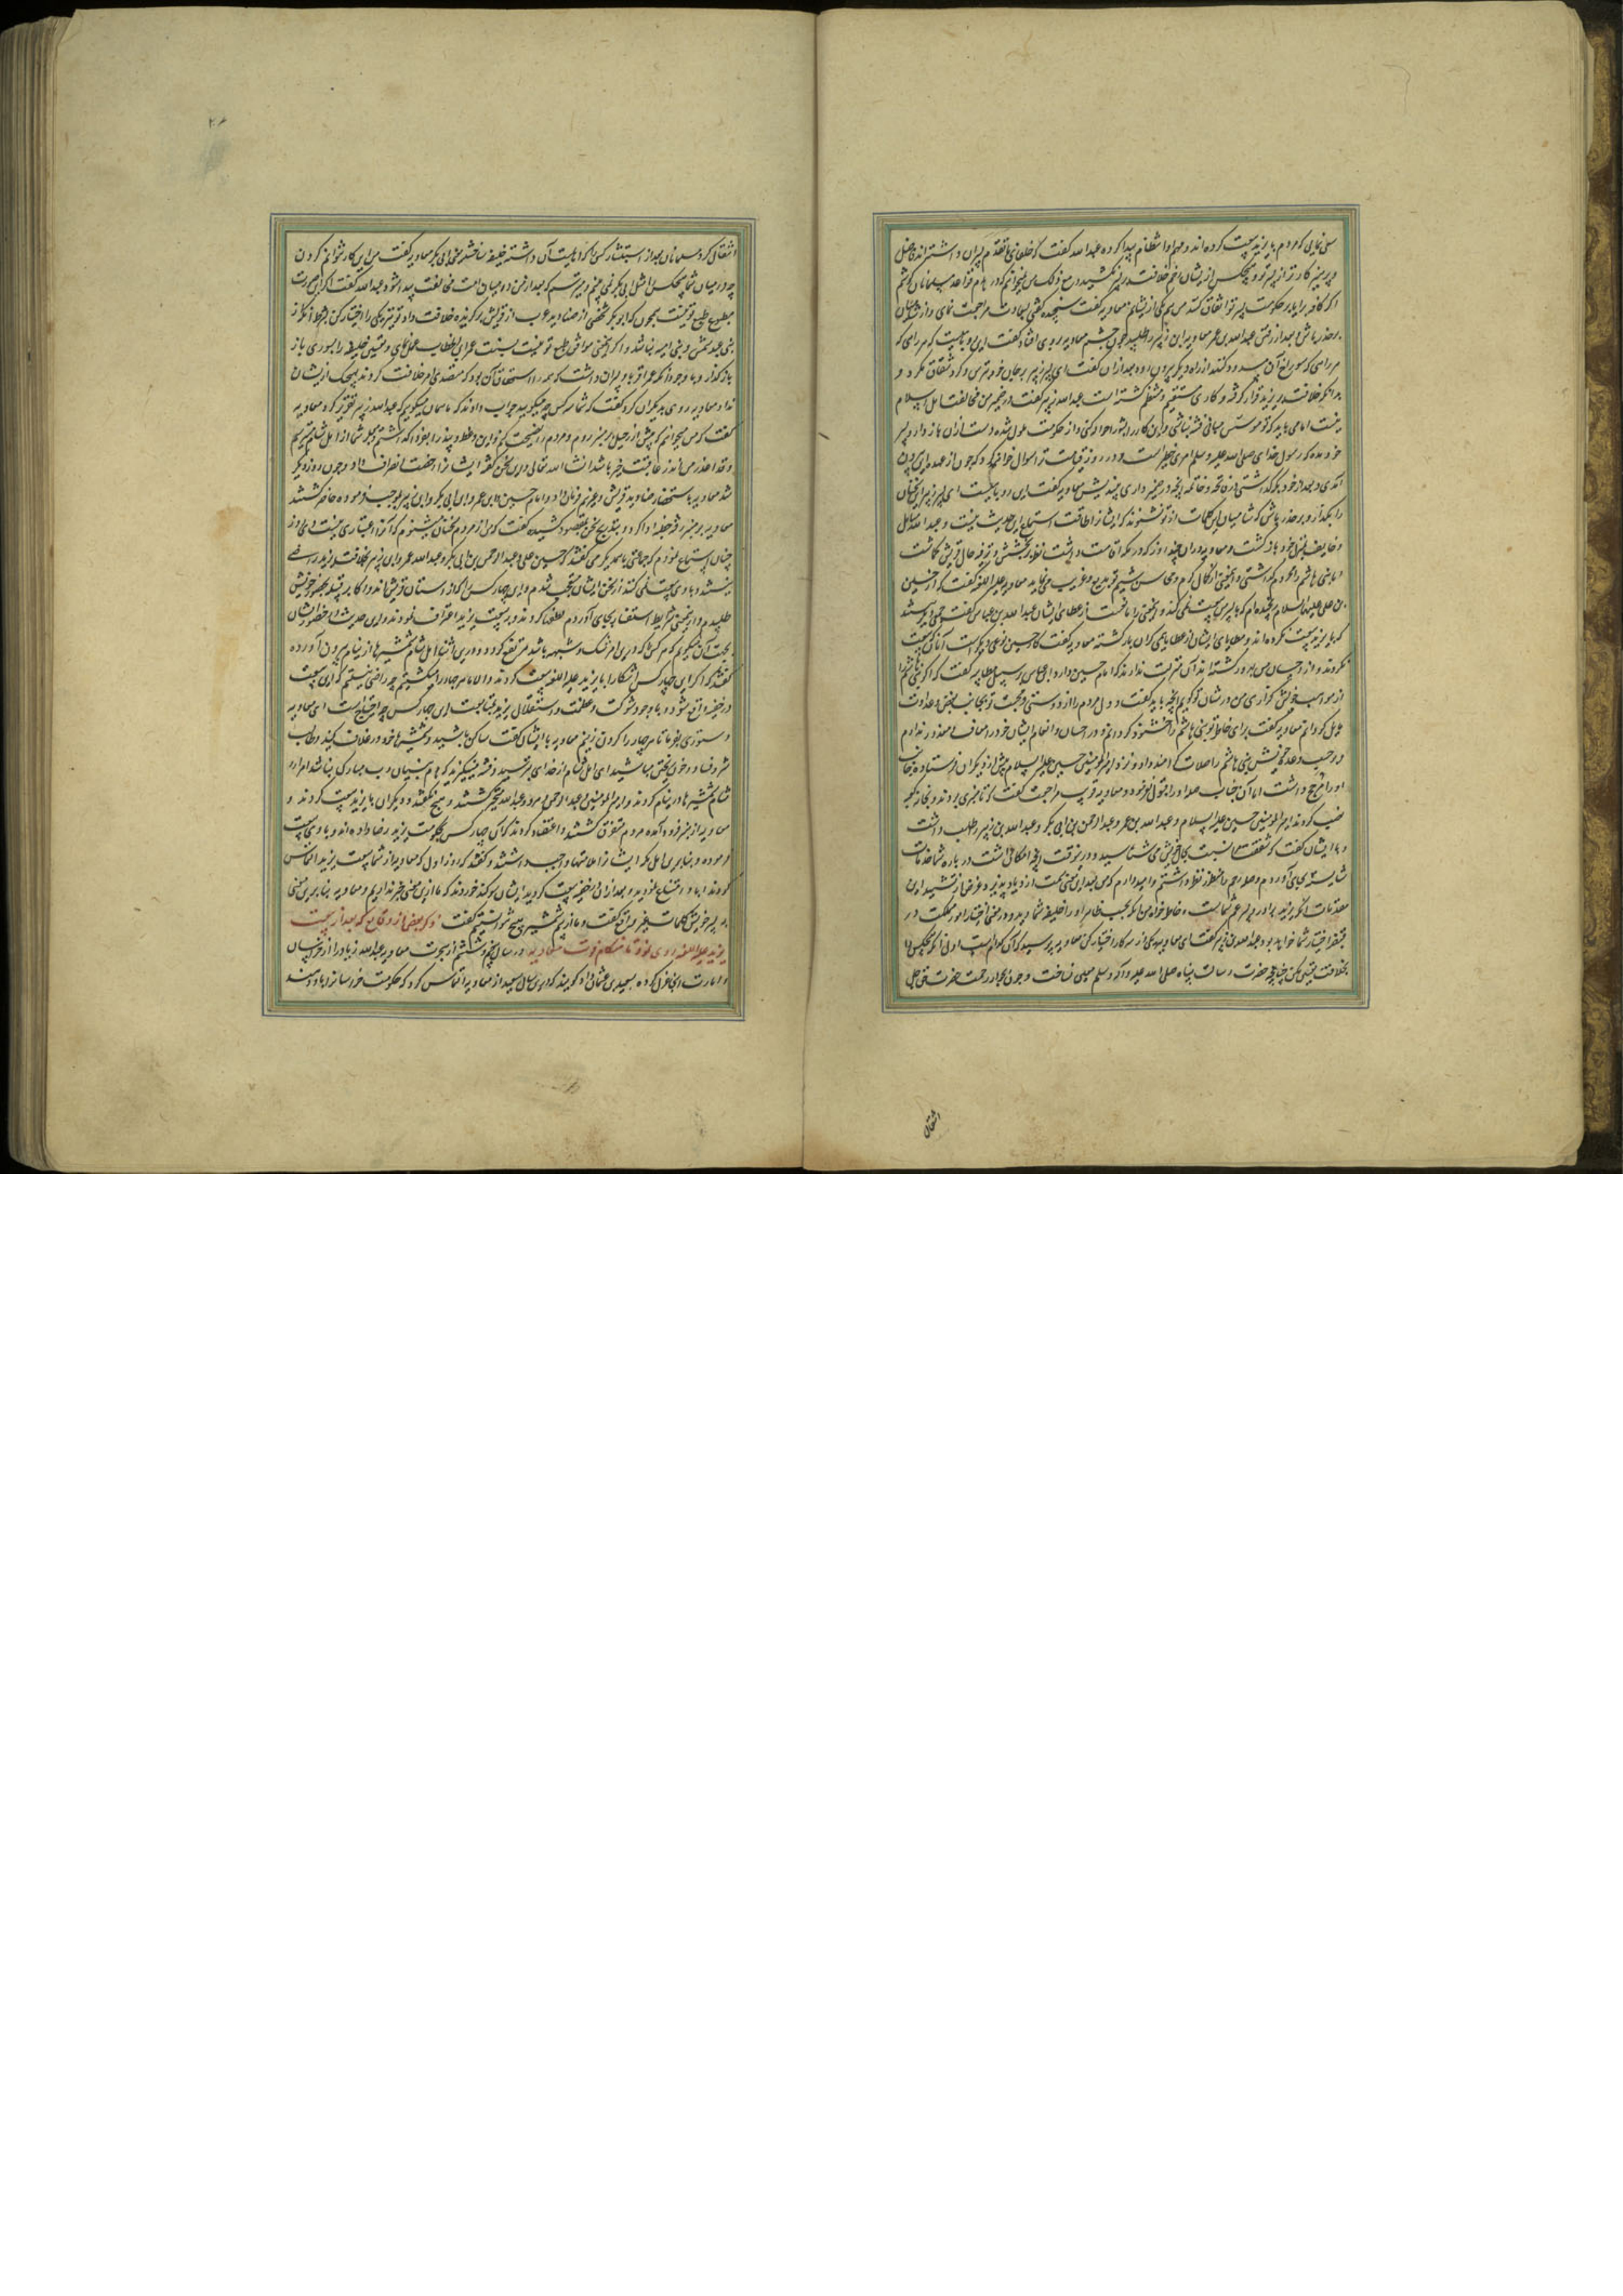 سعی نمایی که مردم با یزید بیعت کرده اند و مهم او انتظام پیدا کرده عبدالله گفت که خلفای ما تقدم پسران داشته اند فاضل
و پرهیزکارتر از پسر تو و هیچکس از ایشان رقم خلافت بر پسر نکشید و مع ذلک من نمیخواهم که در هدم قواعد مسلمانان کوشم
اگر کافه برایا بر حکومت پسر تو اتفاق کنند من هم یکی از ایشانم معاویه گفت سنجیده گفتی بسعادت مراجعت نمای و از شامیان
بر حذر باش و بعد از رفتن عبدالله بن عمر معاویه ابن زبیر را طلبید چون چشم معاویه بر وی افتاد گفت این روباهیست که هر راهی که
هر راهی که سوراخ آن مسدود کنند از راه دیگر بیرون رود بعد از آن گفت ای پسر زبیر بر جان خود بترس و گرد شقاق مگرد و
بدانکه خلافت بر یزید قرار گرفته و کار وی مستقیم و منتظم گشته است عبدالله زبیر گفت در ضمیر من مخالفت اهل اسلام
نیست اما می باید که تو موسس مبانی فتنه نباشی و این کار را بشورا حواله کنی و از حکومت ملول شده دست از آن باز دار و پسر
خود مده که رسول خدای صلی الله علیه و سلم امری خطیر است و در روز قیامت ترا سوال خواهند کرد که چون از عهده این بیرون
آمدی و بعد از خود بر که گذاشتی
را بگذار و بر حذر باش که شامیان این کلمات از تو نشنوند که ایشان را طاقت استماع این حدیث نیست و عبدالله
و خایف بمنزل خود بازگشت و معاویه در آن چند روز که در مکه اقامت داشت نقود بخشش و ترفیه حال قریش گماشت
و بنی هاشم را محروم گذاشت و این معنی از کمال کرم وی
بن علی علیهما السلام رنجیده ام که با پسر من بیعت نمی کند و این معنی را مانعست از عطای ایشان عبدالله بن عباس گفت جمعی دیگر هستند
که با یزید بیعت نکرده اند و عطایای ایشان از عطایای دیگران باز نداشته معاویه گفت کار حسین نوعی دیگرست آنان که بیعت
نکرده اند و از احسان من بهره ور گشته اند آن منزلت ندارند که امام حسین دارد ابن عباس بر سبیل مطایبه گفت که اگر بنی هاشم را
از مواهب خویش
عمل کرده ام معاویه گفت برای خاطر تو بنی هاشم را خشنود گردانم و در احسان و انعام ایشان خود را معاف و معذور ندارم
و بر حسب وعده خویش بنی هاشم را صلات ارجمند داد و نزد امیرالمومنین حسین علیه السلام بیش از دیگران فرستاد و جانب
او را مرجح داشت اما آنجناب صله او را قبول نفرمود و معاویه قریب مراجعت گفت که تا منبر وی بردند و بخانه کعبه
نصب کردند امیرالمومنین حسین علیه السلام و عبدالله بن عمر و عبدالرحمن بن ابی بکر و عبدالله بن زبیر را طلب داشت
و با ایشان گفت که شفقت مرا نسبت بحال خویش می شناسید و در هر وقت آنچه امکان داشت در باره شما خدمات
شایسته بجای آوردم و صله رحم را منظور نظر داشتم و امیدوارم که من بعد این معنی سمت ازدیاد پذیرد و غرض از تمشید این
مقدمات آنکه یزید برادر و پسر عم شماست و خاطر خواه من آنکه بحسب ظاهر او را خلیفه شمارید و در معنی اختیار امور مملکت در
قبضه اختیار شما خواهد بود عبدالله بن زبیر گفت ای معاویه یکی از سه کار اختیار کن معاویه پرسید که آن کدامست اول آنکه هیچکس را
بخلافت تعیین مکن چنانچه حضرت رسالت پناه صلی الله علیه و آله وسلم معین نساخت و چون بجوار رحمت حضرت حق جل
انتقال
انتقال کرد مسلمانان بعد از استشاره کسی را که اهلیت آن داشت خلیفه ساختند یعنی ابی بکر معاویه گفت من این کار نتوانم کردن
چه در میان شما هیچکس را مثل ابی بکر نمی بینم و میترسم که بعد از من در میان امت مخالفت پیدا شود عبدالله گفت اگر این صورت
مطبوع طبع تو نیست همچون که ابوبکر شخصی از صنادید عرب از قریش برگزیده خلافت داد تو نیز یکی را اختیار کن بشرط آنکه از
بنی عبد شمس و بنی امیه نباشد و اگر این معنی موافق طبع تو نیست بسنت عمر بن الخطاب عمل نمای و تعیین خلیفه را بشوری باز
باز گذار و با وجود آنکه عمر اقربا و پسران داشت که همه را استحقاق آن بود که متصدی امر خلافت گردند بهیچیک از ایشان
نداد معاویه روی بدیگران کرد و گفت که شما هر کس چه میگویید جواب دادند که ما همان میگوییم که عبدالله زبیر تقریر کرد معاویه
گفت که من میخواهم که پیش از رحیل بر منبر روم و مردم را نصیحت کنم
و قد اعذر من انذر عاقبت خیر باشد انشاء الله تعالی و این سخن گفته ایشان را رخصت انصراف داد و چون روز دیگر
شد معاویه باستحضار صنادید قریش و غیرهم فرمان داد و امام حسین و ابن عمر و ابن ابی بکر و ابن زبیر بموجب فرموده حاضر گشتند
معاویه بر منبر رفته خطبه ادا کرد و بتدریج سخن بمقصود کشیده گفت که من از مردم سخنان میشنوم که آن را اعتباری نیست و دی روز
چنان استماع نمودم که جماعتی با همدیگر می گفتند که حسین بن علی و عبدالرحمن بن ابی بکر و عبدالله عمر و ابن زبیر بخلافت یزید راضی
نیستند و با وی بیعت نمی کنند از سخن ایشان متعجب شدم و این چهار کس را که از راستان قریش اند و اکابر قبیله بحضور خویش
طلبیدم و از این معنی شرایط استفسار بجای آوردم مطلقا گردن نهند و بر بیعت یزید اعتراف نمودند و این حدیث را در حضور ایشان
بجهت آن میگویم که هر کسی را که در این امر شک و شبهه باشد مرتفع گردد و در این اثنا اهل شام شمشیرها از نیام بیرون آورده
گفتند که اگر این چهار کس آشکارا با یزید علیه اللعنه بیعت کردند والا ما هر چهار را بکشیم چه راضی نیستیم که این بیعت
در خفیه واقع شود و با وجود شوکت و عظمت و استقلال یزید بمتابعت این چهار کس چه احتیاجست ای معاویه
دستوری فرما تا هر چهار را گردن زنیم معاویه با ایشان گفت ساکن باشید و شمشیرها خود در غلاف کنید و طالب
شر و فساد و خون ریختن مباشید ای اهل شام از خدای بترسید و فتنه میانگیزید که هدم بنیان رب مبارک نباشد امرای
شام شمشیرها در نیام کردند و امیرالمومنین و عبدالرحمن و هر دو عبدالله متحیر گشتند و هیچ نگفتند و دیگران با یزید بیعت کردند و
معاویه از منبر فرود آمده مردم متفرق گشتند و اعتقاد کردند که آن چهار کس بحکومت یزید رضا داده اند و با وی بیعت
نموده و بنابرین اهل مکه ایشان را ملامتها واجب داشتند و گفتند که روز اول که معاویه از شما بیعت یزید التماس
کردند ابا و امتناع نمودید و بعد از آن در خفیه بیعت کردید ایشان سوگند خوردند که ما از این معنی خبر نداریم و معاویه بنا بر این معنی
بر سر خویش کلمات غیر واقع گفت و ما از بیم شمشیر هیچ نتوانستیم گفت ذکر بعضی از وقایع که بعد از بیعت
یزید علیه اللعنه روی نمود تا هنگام فوت معاویه در سال پنجاه و ششم از هجرت معاویه عبدالله زیاد را از خراسان
و امارت آنجا عزل کرده بسعید بن عثمان داد گویند که در این سال سعید از معاویه التماس کرد که حکومت خراسان را بدو دهند